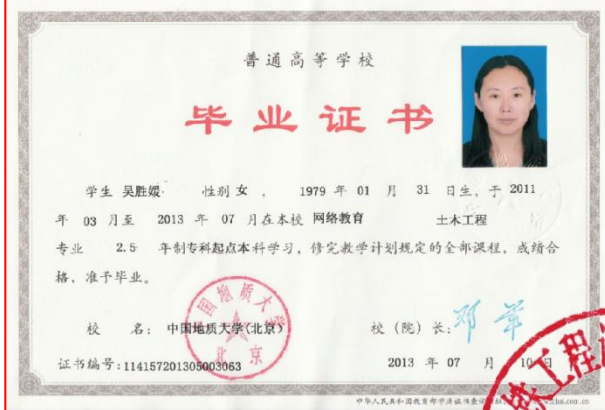 普通高等学校
毕业证书
学生 吴胜媛 性别 女 ， 1979 年 01 月 31 日生，于 2011
年 03 月至 2013 年 07 月在本校 网络教育 土木工程
专业 2.5 年制专科起点本科学习，修完教学计划规定的全部课程，成绩合
格，准予毕业。
校 名：中国地质大学(北京) 校（院）长：邓军
中国地质大学
北京
证书编号：114157201305003063 2013 年 07 月 10 日
工程
中华人民共和国教育部学历证书查询